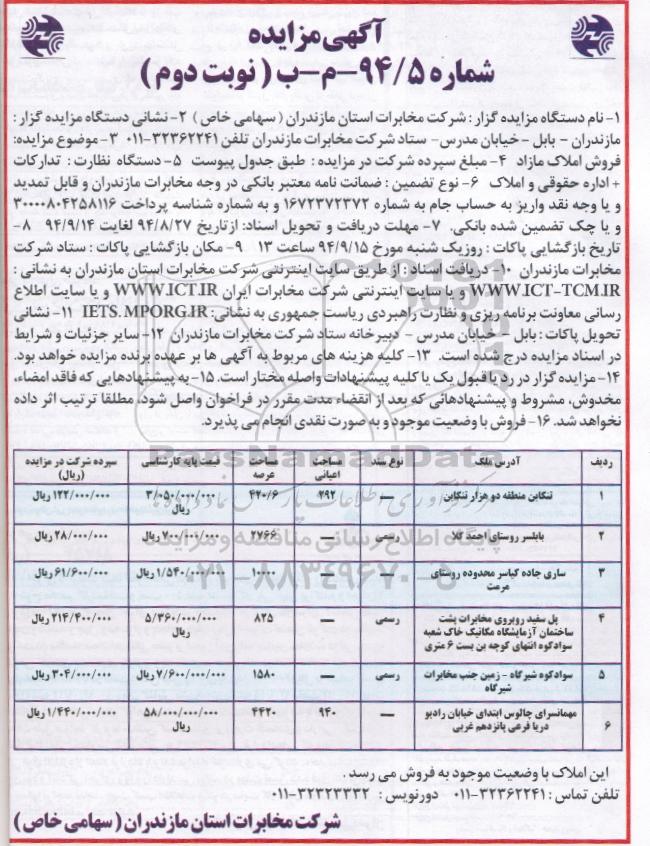 آگهی مزایده
شماره ۹۴/۵-م-ب ( نوبت دوم )
۱- نام دستگاه مزایده گزار : شرکت مخابرات استان مازندران ( سهامی خاص ) ۲- نشانی دستگاه مزایده گزار :
مازندران - بابل -خیابان مدرس- ستاد شرکت مخابرات مازندران تلفن ۳۲۳۶۲۲۴۱-۰۱۱ ۳- موضوع مزایده:
فروش املاک مازاد ۴- مبلغ سپرده شرکت در مزایده : طبق جدول پیوست ۵- دستگاه نظارت : تدارکات
+ اداره حقوقی و املاک ۶- نوع تضمین : ضمانت نامه معتبر بانکی در وجه مخابرات مازندران و قابل تمدید
و یا وجه نقد واریز به حساب جام به شماره ۱۶۷۲۳۷۲۳۷۲ و به شماره شناسه پرداخت ۳۰۰۰۰۸۰۴۲۵۸۱۱۶
و یا چک تضمین شده بانکی. ۷- مهلت دریافت و تحویل اسناد: از تاریخ ۹۴/۸/۲۷ لغایت ۹۴/۹/۱۴ ۸-
تاریخ بازگشایی پاکات : روز یک شنبه مورخ ۹۴/۹/۱۵ ساعت ۱۳ ۹- مکان بازگشایی پاکات : ستاد شرکت
مخابرات مازندران ۱۰- دریافت اسناد : از طریق سایت اینترنتی شرکت مخابرات استان مازندران به نشانی :
WWW.ICT-TCM.IR و یا سایت اینترنتی شرکت مخابرات ایران WWW.ICT.IR و یا سایت اطلاع
رسانی معاونت برنامه ریزی و نظارت راهبردی ریاست جمهوری به نشانی: IETS.MPORG.IR ۱۱- نشانی
تحویل پاکات : بابل - خیابان مدرس - دبیرخانه ستاد شرکت مخابرات مازندران ۱۲- سایر جزئیات و شرایط
در اسناد مزایده درج شده است. ۱۳- کلیه هزینه های مربوط به آگهی ها بر عهده برنده مزایده خواهد بود.
۱۴- مزایده گزار در رد یا قبول یک یا کلیه پیشنهادات واصله مختار است. ۱۵- به پیشنهادهایی که فاقد امضاء،
مخدوش، مشروط و پیشنهادهائی که بعد از انقضاء مدت مقرر در فراخوان واصل شود، مطلقا ترتیب اثر داده
نخواهد شد. ۱۶- فروش با وضعیت موجود و به صورت نقدی انجام می پذیرد.
ParsNamadData
مرکز فرآوری اطلاعات پارس نماد داده ها
پایگاه اطلاع رسانی مناقصه و مزایده
۰۲۱-۸۸۳۴۹۶۷۰-۵
ردیف آدرس ملک نوع سند مساحت اعیانی مساحت عرصه قیمت پایه کارشناسی سپرده شرکت در مزایده (ریال)
۱ تنکابن منطقه دو هزار تنکابن — ۲۹۲ ۴۲۰/۶ ۳/۰۵۰/۰۰۰/۰۰۰ ریال ۱۲۲/۰۰۰/۰۰۰ ریال
۲ بابلسر روستای احمد کلا رسمی — ۲۷۶۶ ۷۰۰/۰۰۰/۰۰۰ ریال ۲۸/۰۰۰/۰۰۰ ریال
۳ ساری جاده کیاسر محدوده روستای مرمت — — ۱۰۰۰۰ ۱/۵۴۰/۰۰۰/۰۰۰ ریال ۶۱/۶۰۰/۰۰۰ ریال
۴ پل سفید روبروی مخابرات پشت ساختمان آزمایشگاه مکانیک خاک شعبه سوادکوه انتهای کوچه بن بست ۶ متری رسمی — ۸۲۵ ۵/۳۶۰/۰۰۰/۰۰۰ ریال ۲۱۴/۴۰۰/۰۰۰ ریال
۵ سوادکوه شیرگاه - زمین جنب مخابرات شیرگاه رسمی — ۱۵۸۰ ۷/۶۰۰/۰۰۰/۰۰۰ ریال ۳۰۴/۰۰۰/۰۰۰ ریال
۶ مهمانسرای چالوس ابتدای خیابان رادیو دریا فرعی پانزدهم غربی — ۹۴۰ ۴۴۲۰ ۵۸/۰۰۰/۰۰۰/۰۰۰ ریال ۱/۴۴۰/۰۰۰/۰۰۰ ریال
این املاک با وضعیت موجود به فروش می رسد .
تلفن تماس : ۳۲۳۶۲۲۴۱-۰۱۱ دورنویس : ۳۲۳۲۳۳۳۲-۰۱۱
شرکت مخابرات استان مازندران ( سهامی خاص )